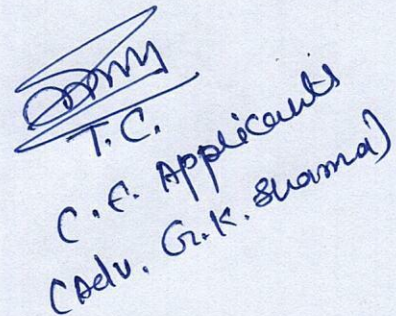 T.C.
C.F. Applicants
(Adv. G.K. Sharma)